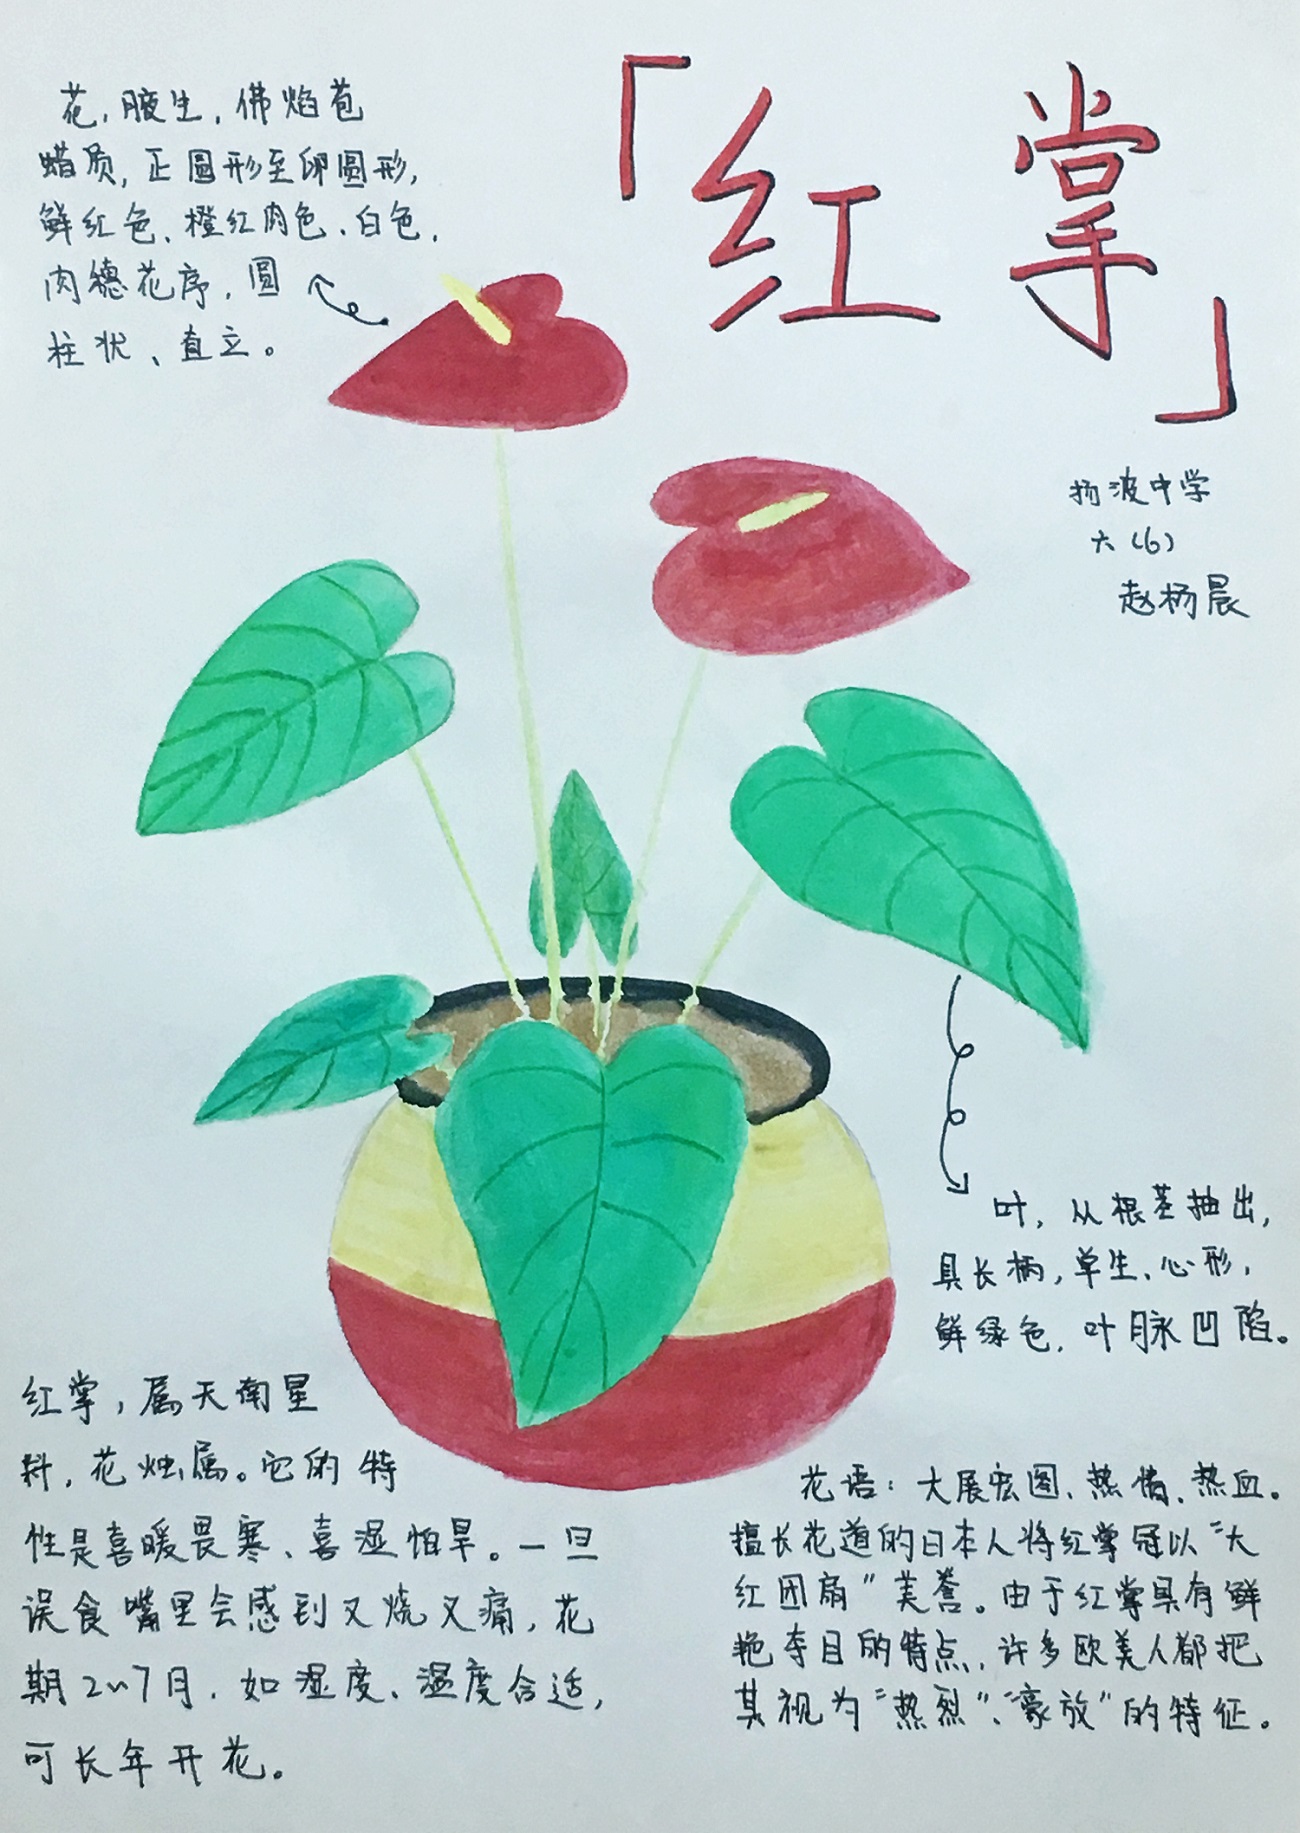 「红掌」
花，腋生，佛焰苞
蜡质，正圆形至卵圆形，
鲜红色、橙红肉色、白色，
肉穗花序，圆
柱状、直立。
扬波中学
六（6）
赵杨晨
叶，从根茎抽出，
具长柄，单生、心形，
鲜绿色，叶脉凹陷。
红掌，属天南星
科，花烛属。它的特
性是喜暖畏寒、喜湿怕旱。一旦
误食嘴里会感到又烧又痛，花
期2~7月，如湿度、温度合适，
可长年开花。
花语：大展宏图、热情、热血。
擅长花道的日本人将红掌冠以“大
红团扇”美誉。由于红掌具有鲜
艳夺目的特点，许多欧美人都把
其视为“热烈”、“豪放”的特征。